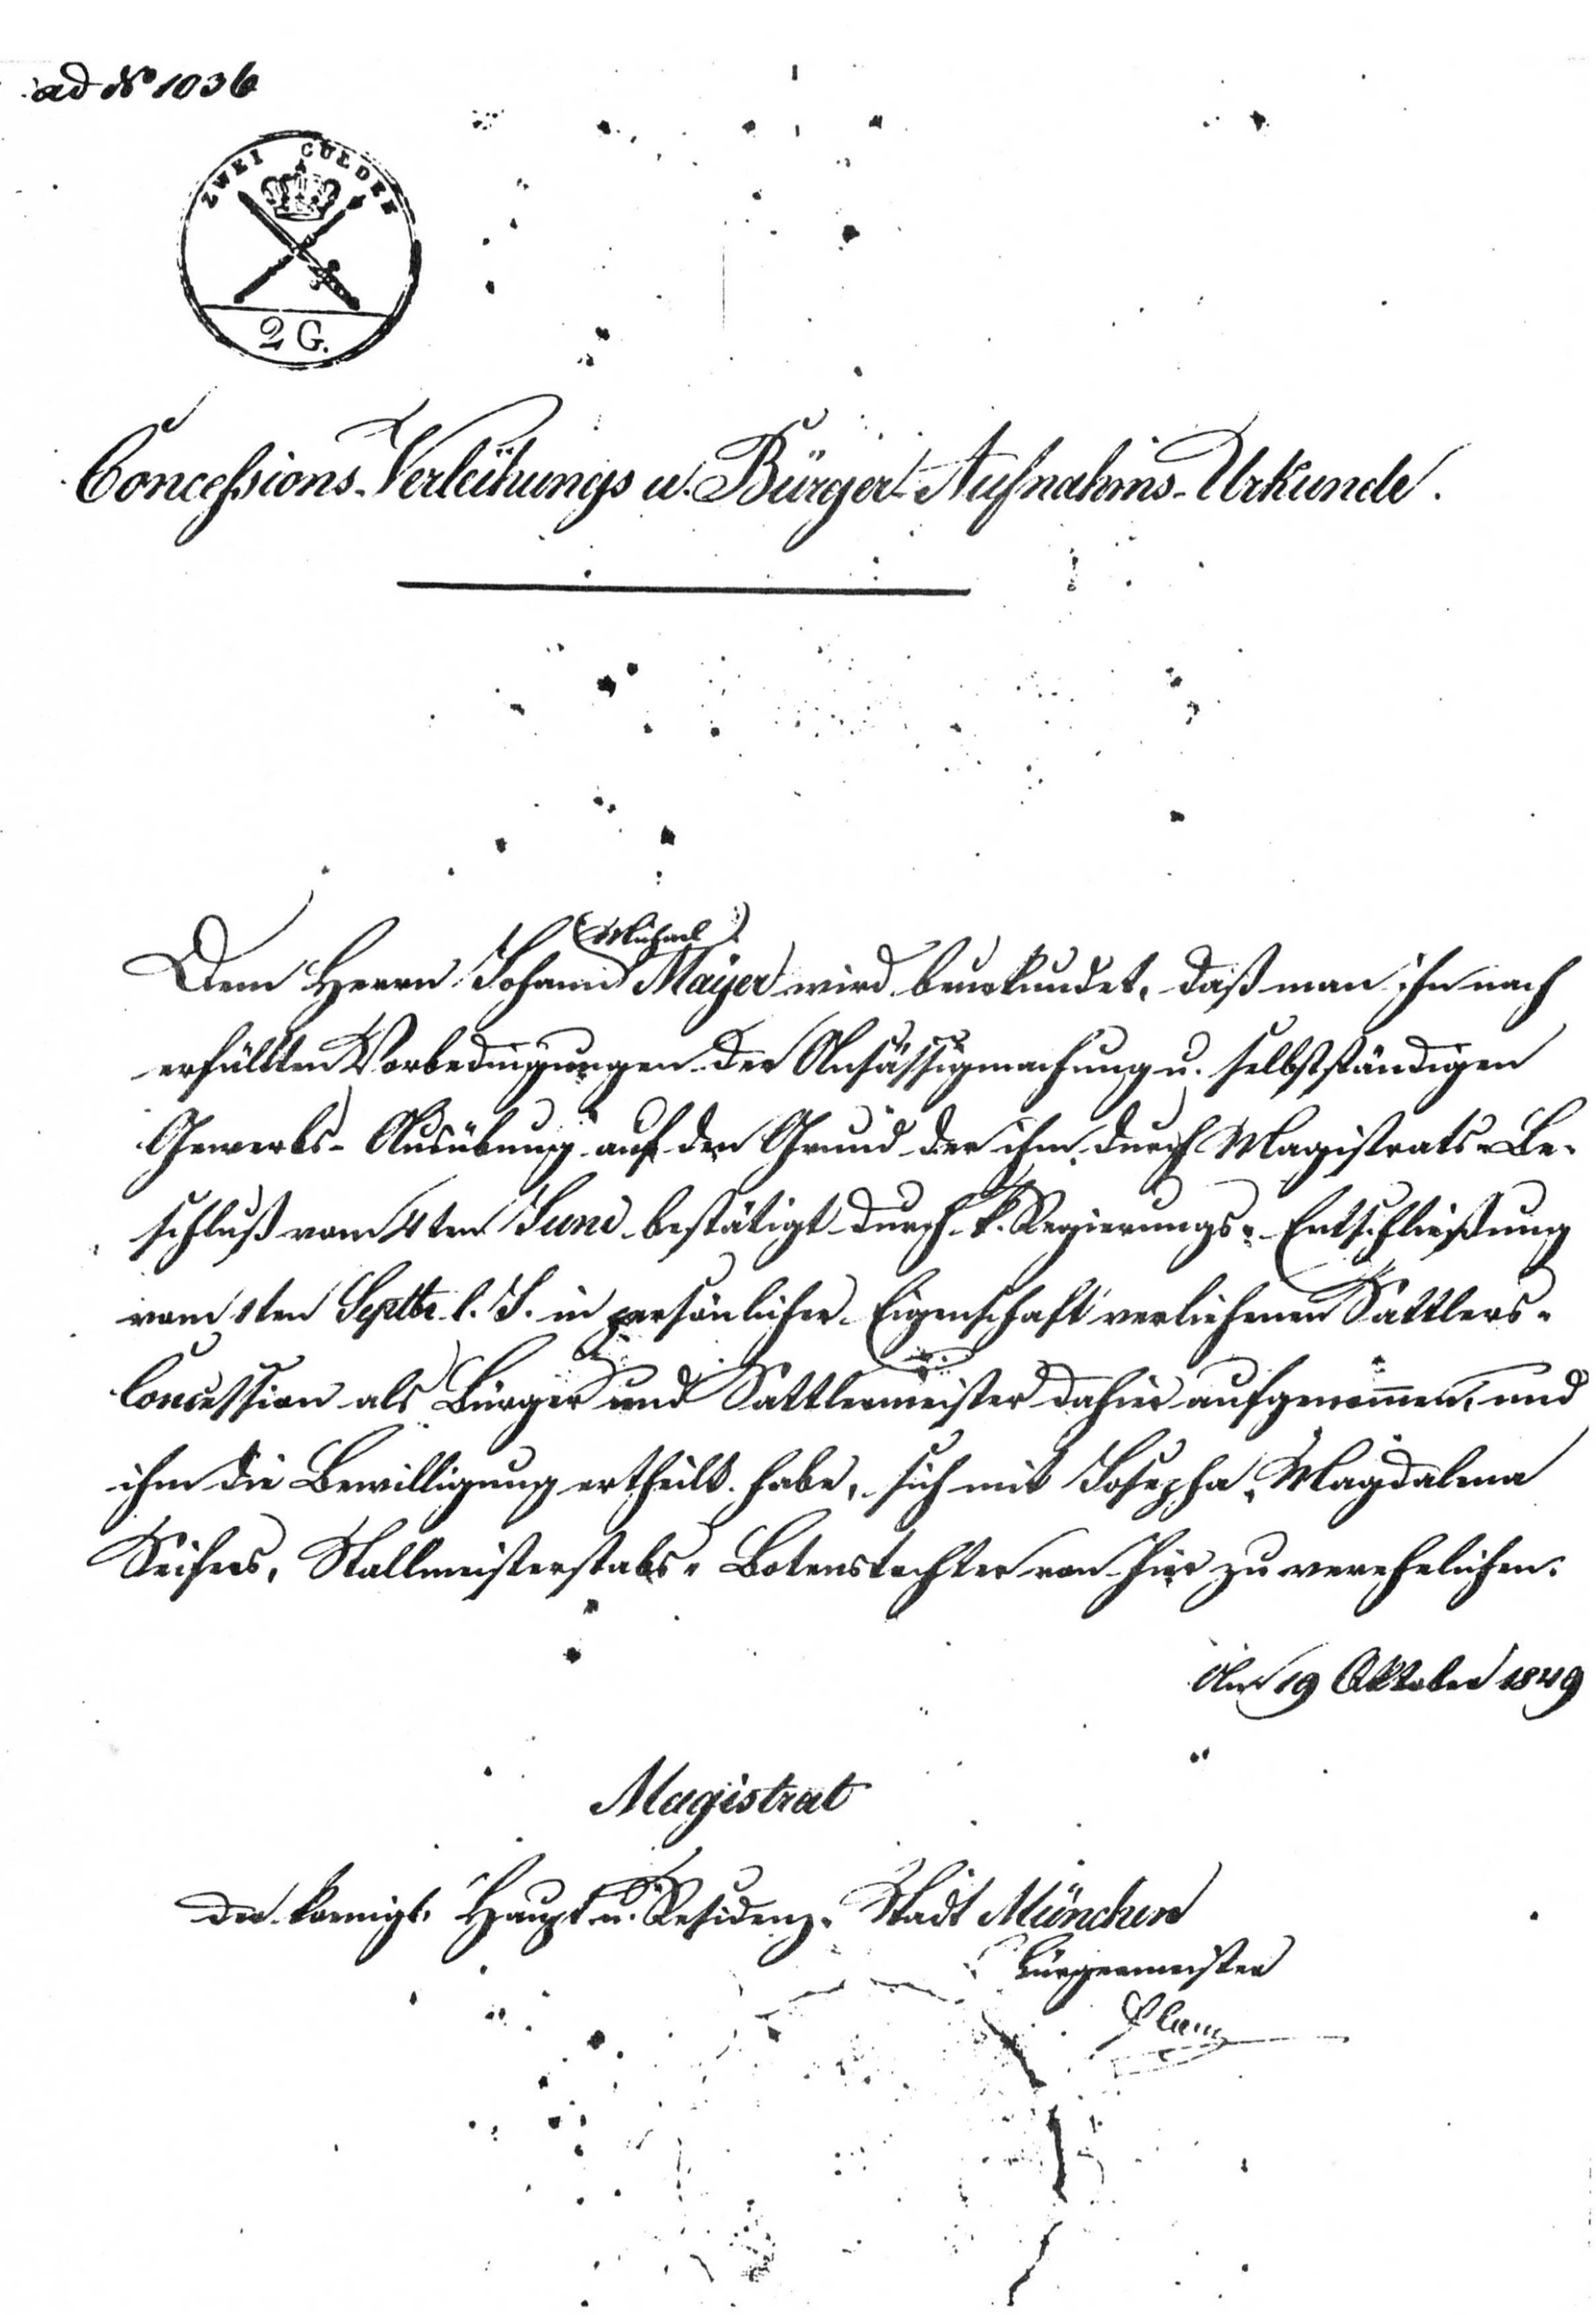 ad No 1036
ZWEI GULDEN
2 G.
Concessions-Verleihungs u. Bürger-Aufnahms-Urkunde.
(Michael)
Dem Herrn Johann Mayer wird beurkundet, daß man ihn nach
erfüllten Vorbedingungen der Ansässigmachung u. selbstständigen
Gewerbs-Ausübung auf den Grund der ihm durch Magistrats-Be-
schluß vom 4ten Juni bestätigt durch k. Regierungs-Entschließung
vom 1ten Septbr. l. J. in persönlicher Eigenschaft verliehenen Sattlers-
Concession als Bürger und Sattlermeister dahier aufgenommen, und
ihm die Bewilligung ertheilt habe, sich mit Josepha Magdalena
Stallmeisterstabs-Botenstochter von hier zu verehelichen.
19 Oktober 1849
Magistrat
der koenigl. Haupt u. Residenz-Stadt München
Bürgermeister